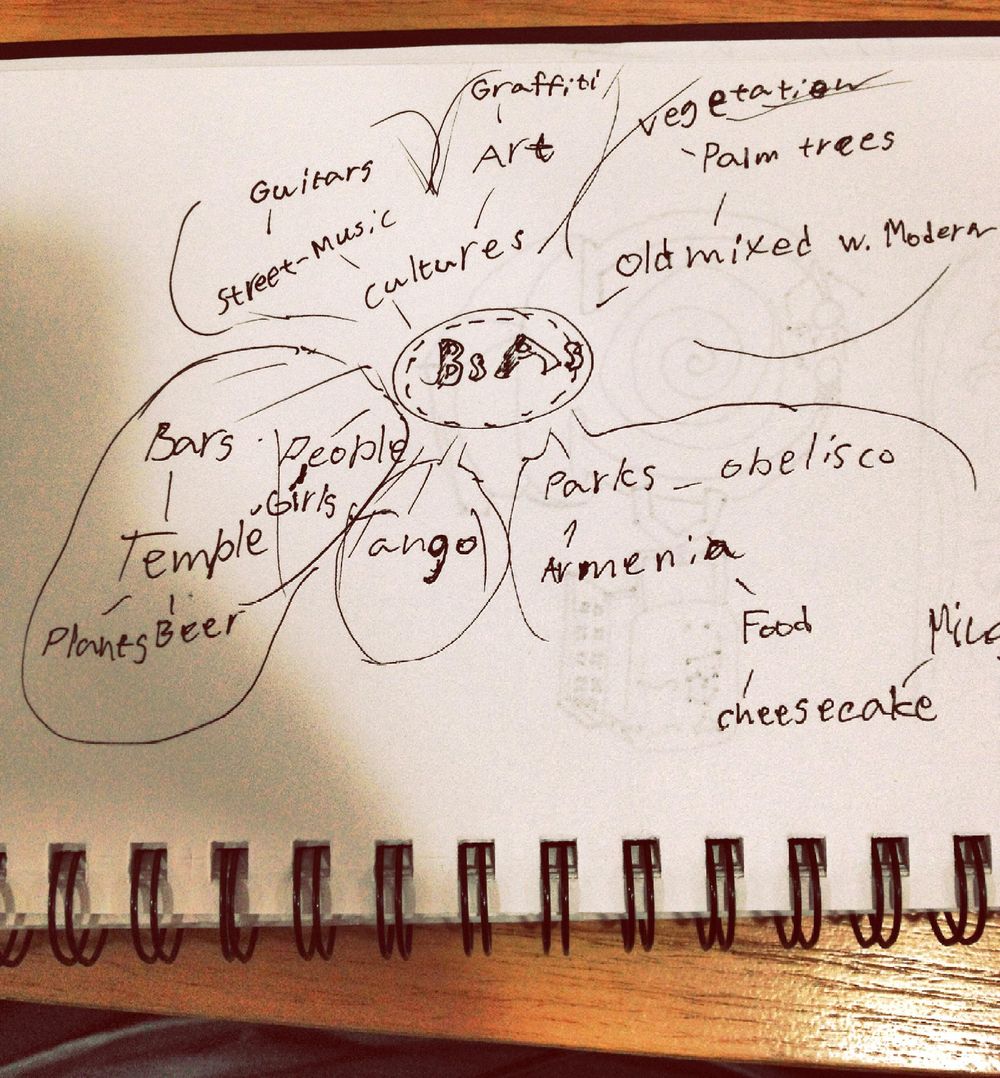 Graffiti
Art
Guitars
street-Music
cultures
vegetation
Palm trees
old mixed w. Modern
BsAs
Bars
People
Girls
Temple
Plants Beer
Tango
Parks _ obelisco
Armenia
Food
cheesecake